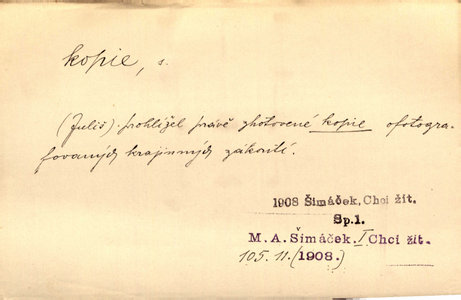 kopie, s.
(Juliš) prohlížel právě zhotovené kopie ofotogra-
fovaných krajinných zákoutí.
1908 Šimáček, Chci žít.
Sp.1.
M. A. Šimáček. I Chci žít.
105. 11. (1908.)